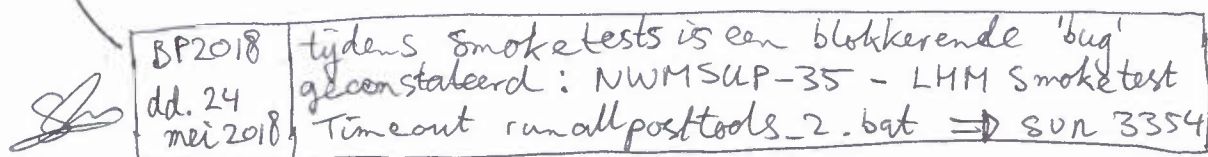 BP2018
dd. 24
mei 2018
tijdens smoketests is een blokkerende 'bug'
geconstateerd: NWMSUP-35 - LHM Smoketest
Timeout runallposttools_2.bat => SVN 3354